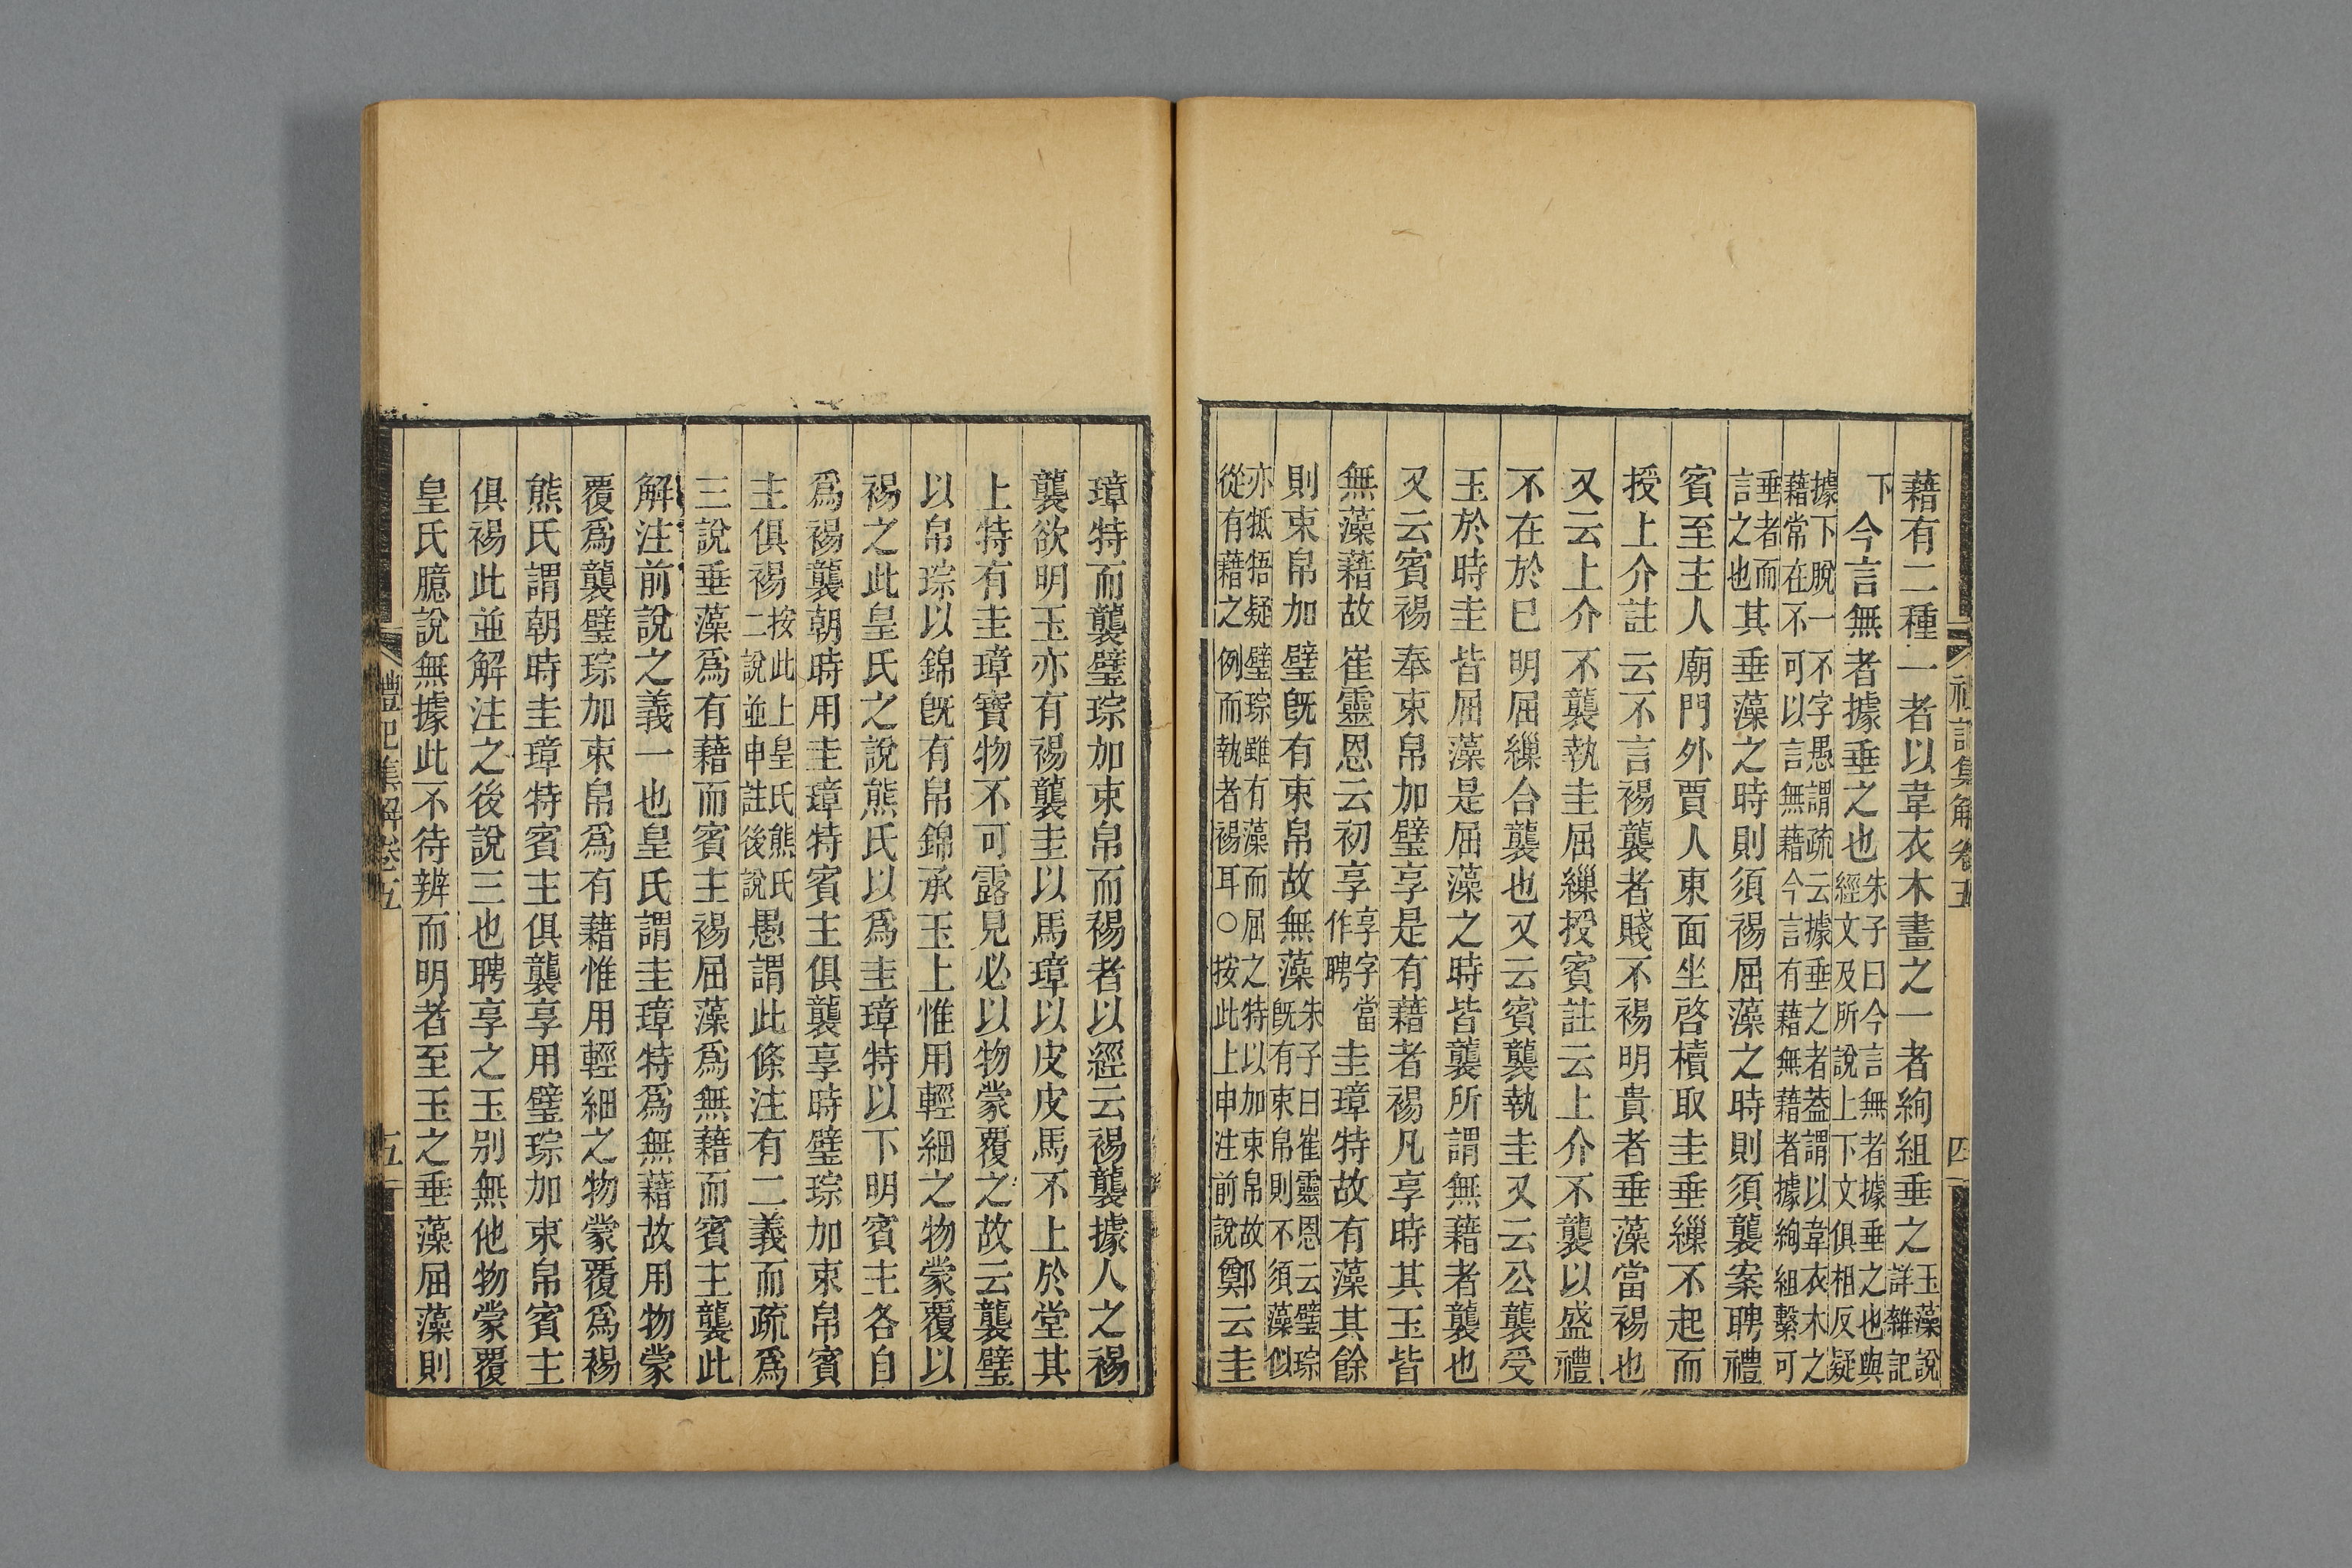 禮記集解卷五
四
藉有二種一者以韋衣木畫之一者絢組垂之玉藻說詳雜記
下今言無者據垂之也朱子曰今言無者據垂之也與經文及所說上下文俱相反疑
據下脫一不字愚謂疏云據垂之者蓋謂以韋衣木之藉常在不可以言無藉今言有藉無藉者據絢組繫可
垂者而言之也其垂藻之時則須裼屈藻之時則須襲案聘禮
賓至主人廟門外賈人東面坐啓櫝取圭垂繅不起而
授上介註云不言裼襲者賤不裼明貴者垂藻當裼也
又云上介不襲執圭屈繅授賓註云上介不襲以盛禮
不在於已明屈繅合襲也又云賓襲執圭又云公襲受
玉於時圭皆屈藻是屈藻之時皆襲所謂無藉者襲也
又云賓裼奉束帛加璧享是有藉者裼凡享時其玉皆
無藻藉故崔靈恩云初享享字當作聘圭璋特故有藻其餘
則束帛加璧既有束帛故無藻朱子曰崔靈恩云璧琮既有束帛則不須藻似
亦抵牾疑璧琮雖有藻而屈之特以加束帛故從有藉之例而執者裼耳○按此上申注前說鄭云圭
璋特而襲璧琮加束帛而裼者以經云裼襲據人之裼
襲欲明玉亦有裼襲圭以馬璋以皮皮馬不上於堂其
上特有圭璋寶物不可露見必以物蒙覆之故云襲璧
以帛琮以錦既有帛錦承玉上惟用輕細之物蒙覆以
裼之此皇氏之說熊氏以爲圭璋特以下明賓主各自
爲裼襲朝時用圭璋特賓主俱襲享時璧琮加束帛賓
主俱裼按此上皇氏熊氏二說並申註後說愚謂此條注有二義而疏爲
三說垂藻爲有藉而賓主裼屈藻爲無藉而賓主襲此
解注前說之義一也皇氏謂圭璋特爲無藉故用物蒙
覆爲襲璧琮加束帛爲有藉惟用輕細之物蒙覆爲裼
熊氏謂朝時圭璋特賓主俱襲享用璧琮加束帛賓主
俱裼此並解注之後說三也聘享之玉别無他物蒙覆
皇氏臆說無據此不待辨而明者至玉之垂藻屈藻則
禮記集解卷五
五